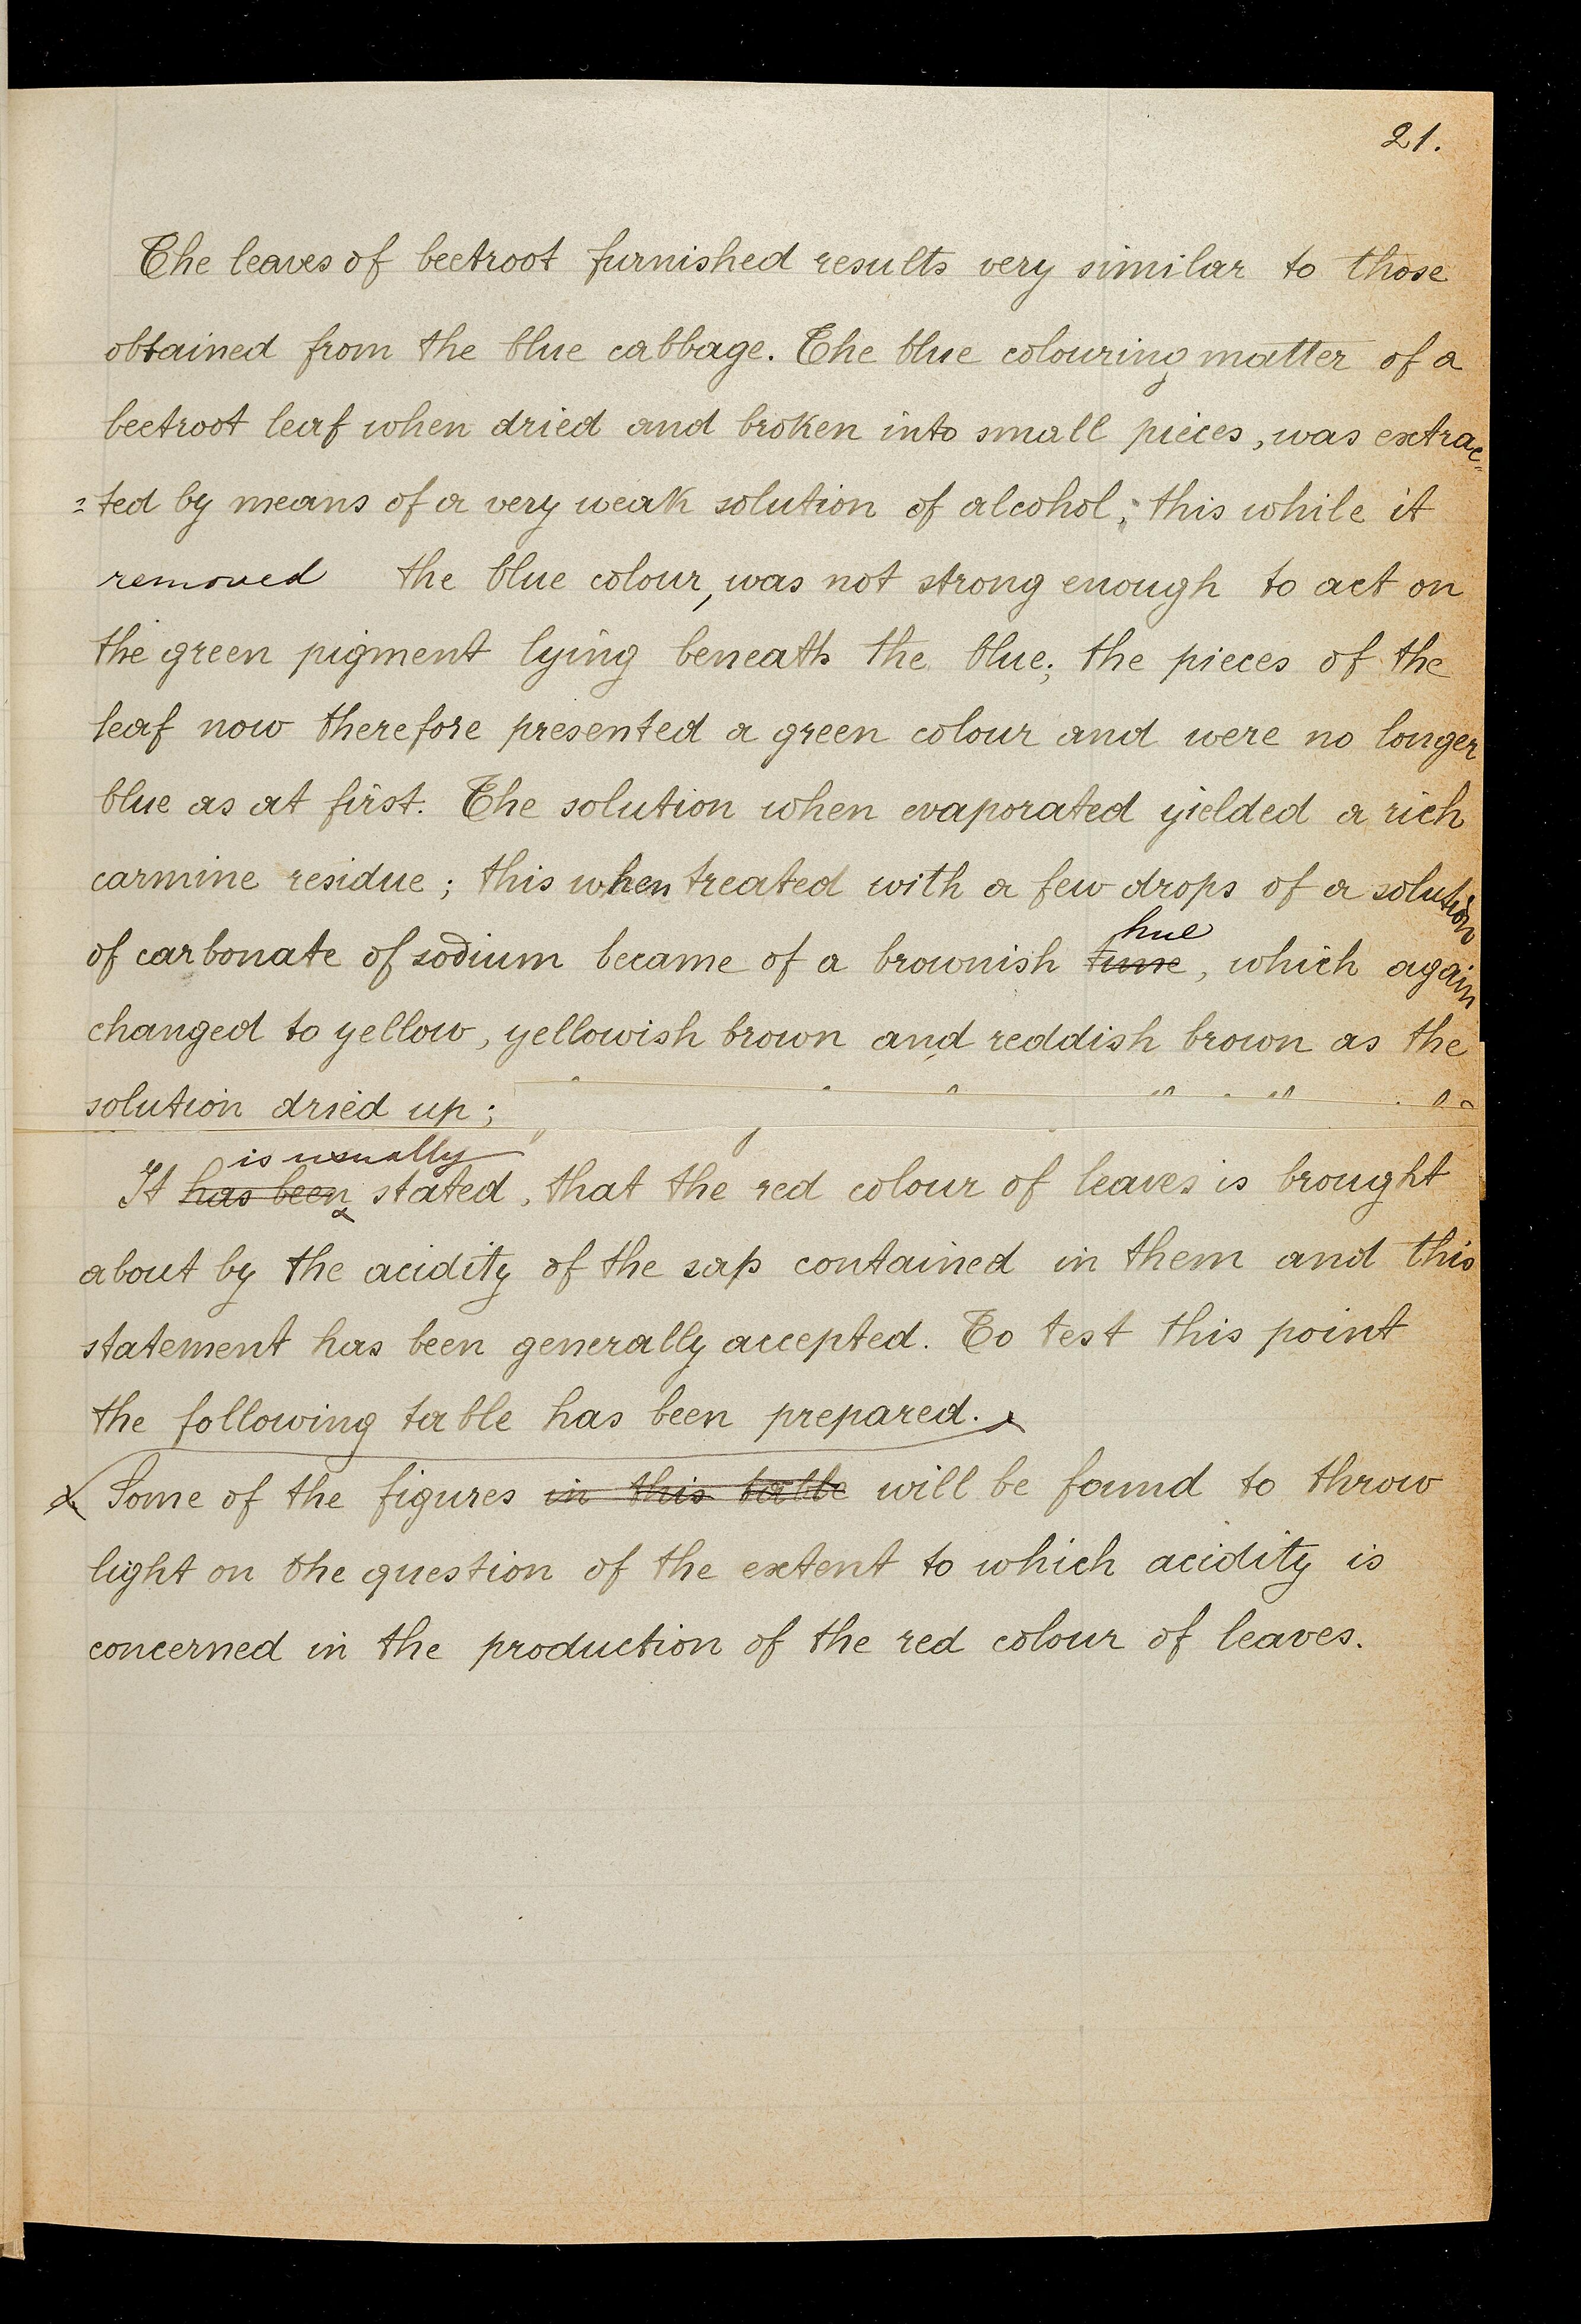 21.
The leaves of beetroot furnished results very similar to those
obtained from the blue cabbage. The blue colouring matter of a
beetroot leaf when dried and broken into small pieces, was extrac=
=ted by means of a very weak solution of alcohol; this while it
removed the blue colour, was not strong enough to act on
the green pigment lying beneath the blue; the pieces of the
leaf now therefore presented a green colour and were no longer
blue as at first. The solution when evaporated yielded a rich
carmine residue; this when treated with a few drops of a solution
hue
of carbonate of sodium became of a brownish , which again
changed to yellow, yellowish brown and reddish brown as the
solution dried up;
is usually
It has been stated, that the red colour of leaves is brought
about by the acidity of the sap contained in them and this
statement has been generally accepted. To test this point
the following table has been prepared.
x Some of the figures in this table will be found to throw
light on the question of the extent to which acidity is
concerned in the production of the red colour of leaves.